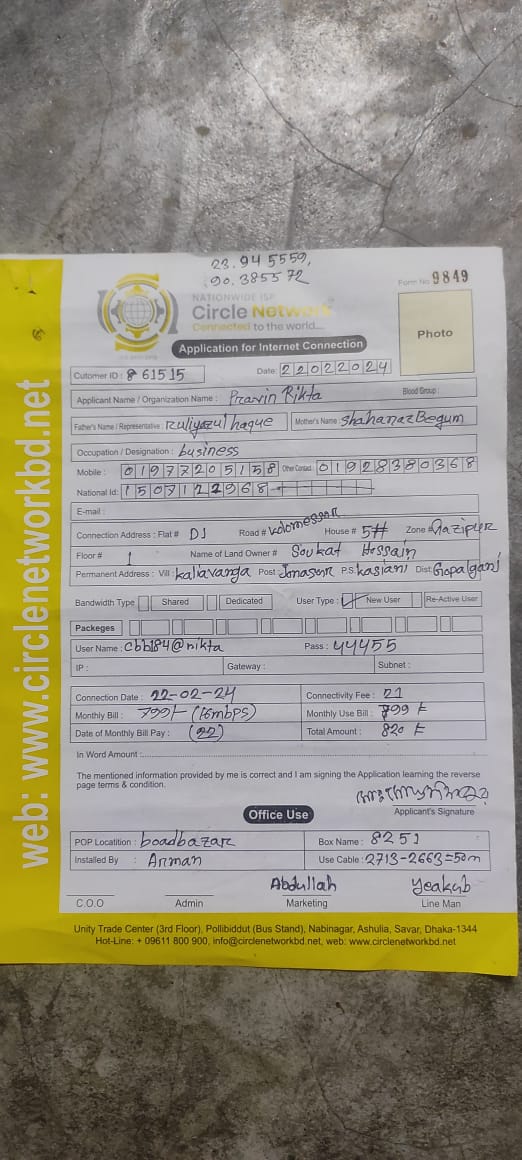 23.945559,
90.385572
Form No 9849
NATIONWIDE ISP
Circle Network
Connected to the world....
Photo
Application for Internet Connection
Cutomer ID : 61515 Date: 22022024
Applicant Name / Organization Name : Pravin Rikta Blood Group :
Father's Name / Representative : haque Mother's Name : Shahanaz Begum
Occupation / Designation : business
Mobile : 01977205158 Other Contact : 01928380368
National Id: 1507122968
E-mail :
Connection Address : Flat # D1 Road # Kolomessor House # 5# Zone Gazipur
Floor # 1 Name of Land Owner # Soukat Hossain
Permanent Address : Vill: Kallavanga Post: P.S Kasiani Dist: Gopalganj
Bandwidth Type Shared Dedicated User Type : New User Re-Active User
Packeges
User Name : cbb184@nikta Pass : 44455
IP : Gateway : Subnet :
Connection Date : 22-02-24 Connectivity Fee : 21
Monthly Bill : 799/- (16mbps) Monthly Use Bill : 799 ৳
Date of Monthly Bill Pay : (22) Total Amount : 820 ৳
In Word Amount :
The mentioned information provided by me is correct and I am signing the Application learning the reverse
page terms & condition.
Applicant's Signature
Office Use
POP Locatition : boadbazar Box Name : 8251
Installed By : Arman Use Cable : 2713-2663=50m
Abdullah Yeakub
C.O.O Admin Marketing Line Man
Unity Trade Center (3rd Floor), Pollibiddut (Bus Stand), Nabinagar, Ashulia, Savar, Dhaka-1344
Hot-Line: + 09611 800 900, info@circlenetworkbd.net, web: www.circlenetworkbd.net
web: www.circlenetworkbd.net